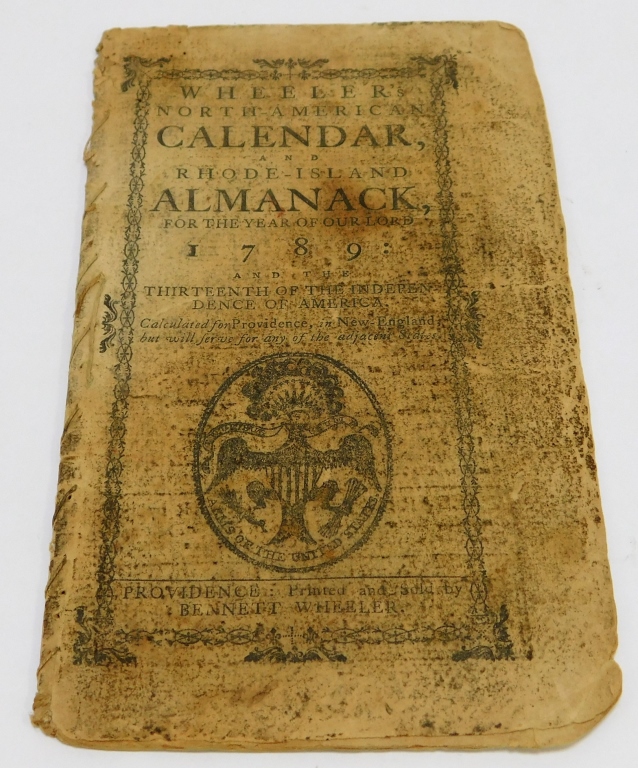 WHEELER's
NORTH-AMERICAN
CALENDAR,
AND
RHODE-ISLAND
ALMANACK,
FOR THE YEAR OF OUR LORD
1789:
AND THE
THIRTEENTH OF THE INDEPEN-
DENCE OF AMERICA.
Calculated for Providence, in New-England;
but will serve for any of the adjacent States.
OF THE UNITED STATES
PROVIDENCE: Printed and Sold by
BENNETT WHEELER.